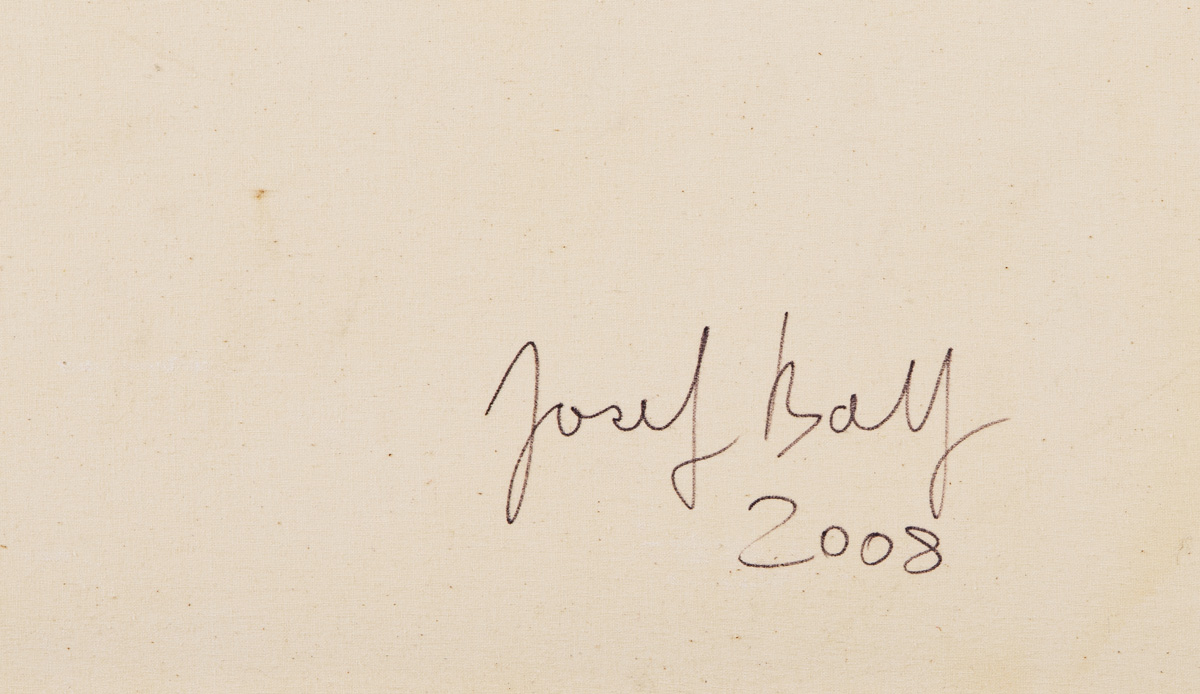 Josef Bolf
2008